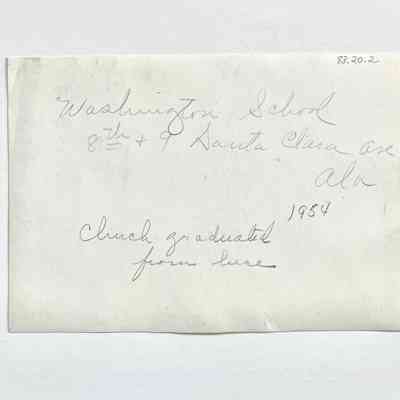 83.20.2
Washington School
8th + 9 Santa Clara ave
Ala
1954
Chuck graduated
from here